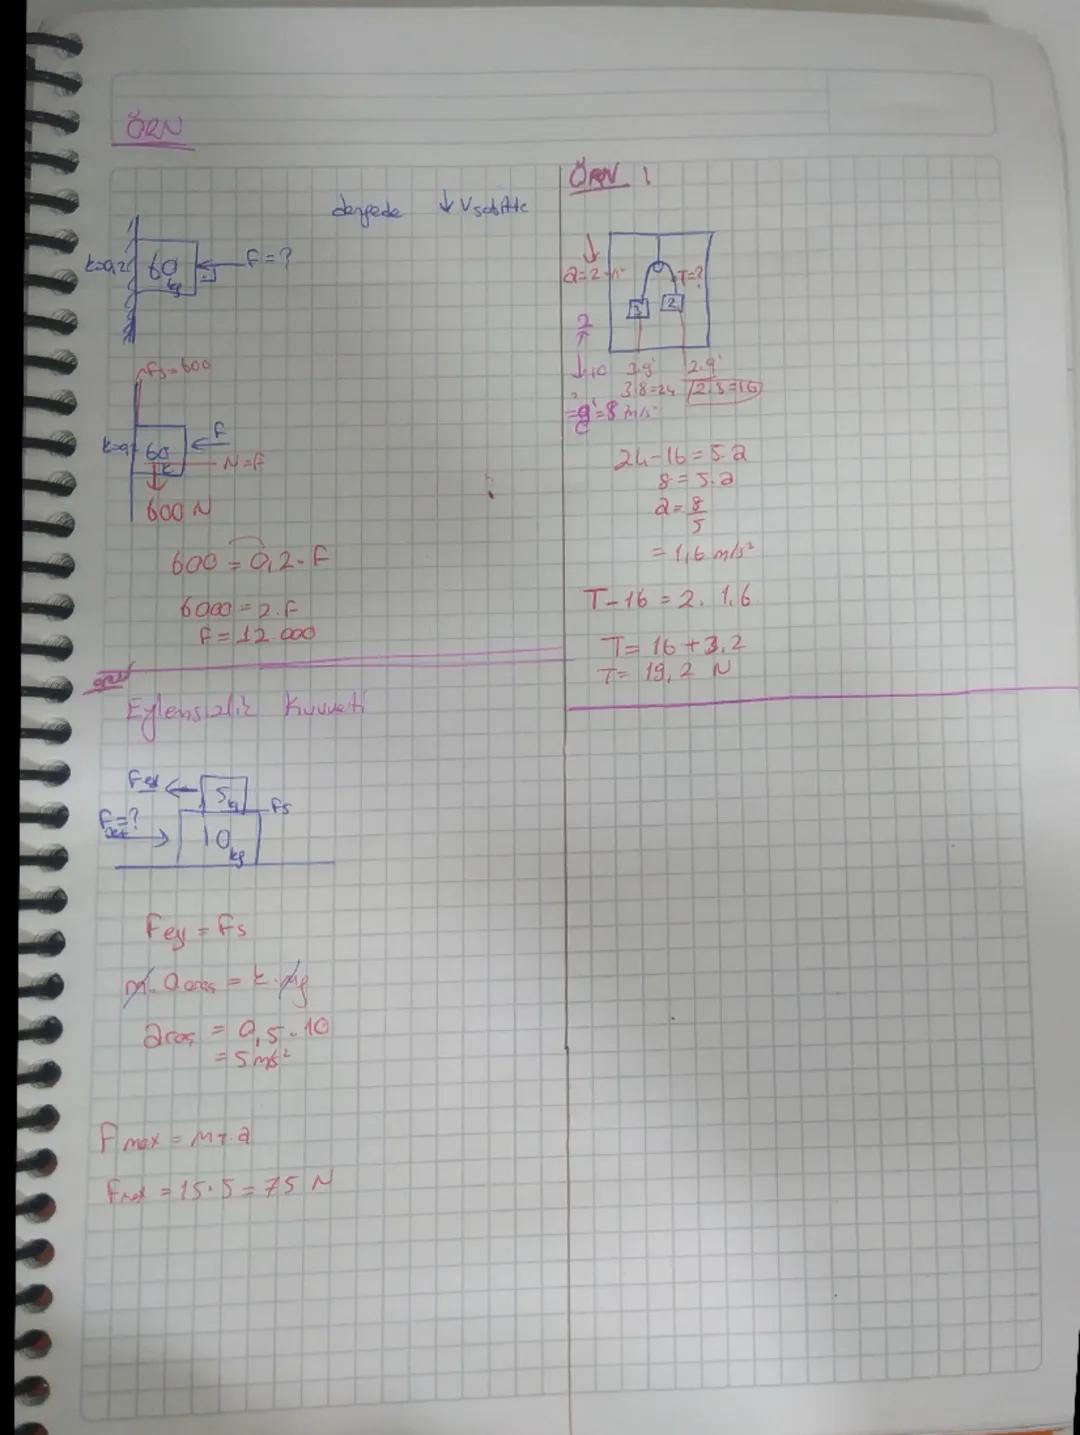 ÖRN
dengede ↓ Vsabitte
k=0,2
60
kg
F=?
fs=600
60
F
N=F
600 N
600 = 0,2.F
6000 = 2.F
F = 12.000
örn
Eylemsizlik Kuvveti
Fey
5
kg
fs
F=?
10
kg
Fey = Fs
m.aaraç = k.mg
aaraç = 0,5.10
= 5 m/s²
Fmax = mT.a
Fmax = 15.5 = 75 N
ÖRN 1
a=2
T=?
3
2
2
10
3.g'
2.g'
3.8=24
2.8=16
g'=8 m/s²
24-16 = 5.a
8 = 5.a
a = 8
5
= 1,6 m/s²
T-16 = 2. 1,6
T = 16 + 3,2
T = 19,2 N